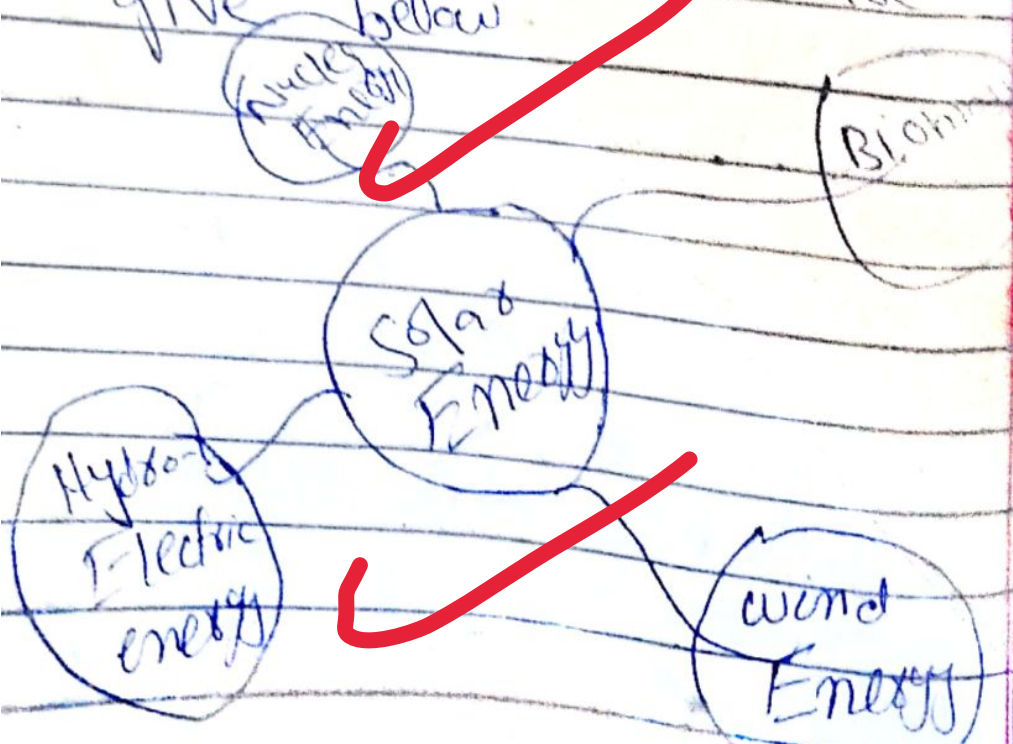 give bellow
Nucler
Energy
Solar
Energy
Hydro-
Electric
energy
wind
Energy